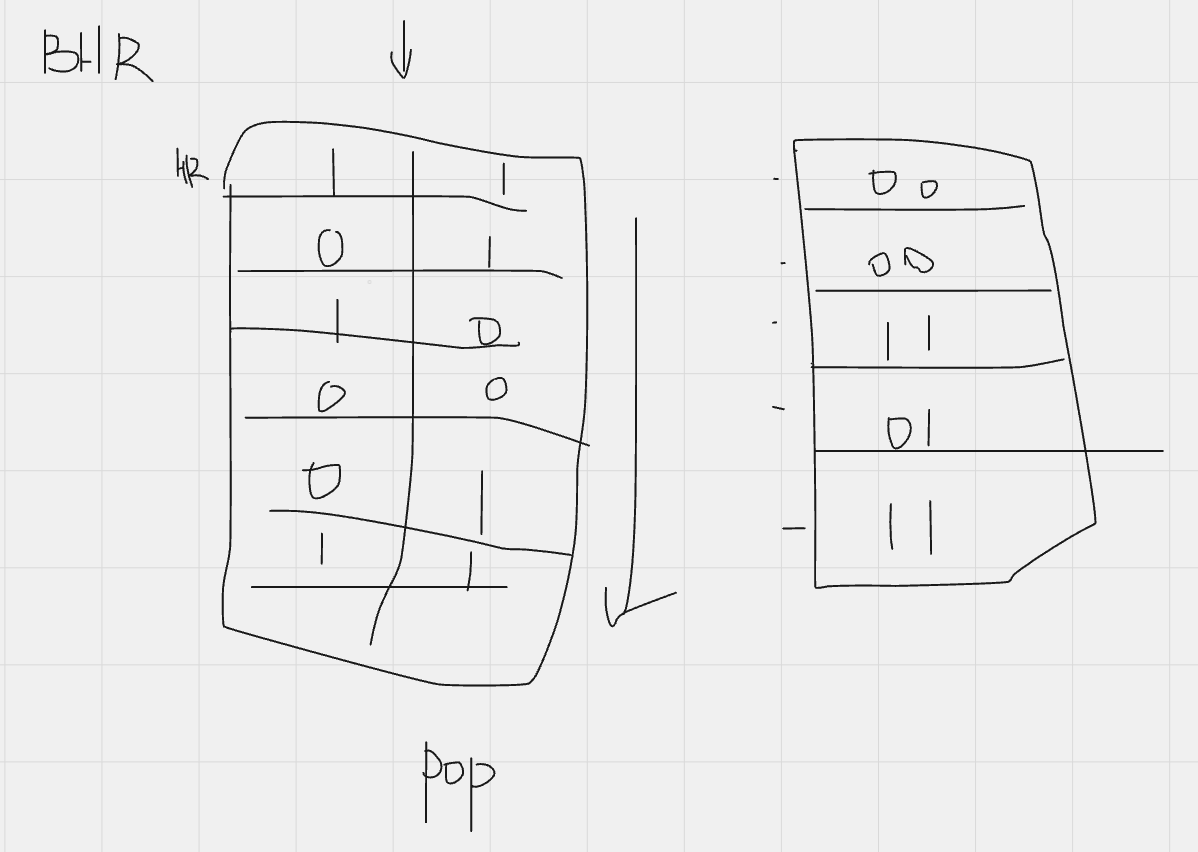 BHR
HR
1 1
0 1
1 0
0 0
0 1
1 1
00
00
11
01
11
pop